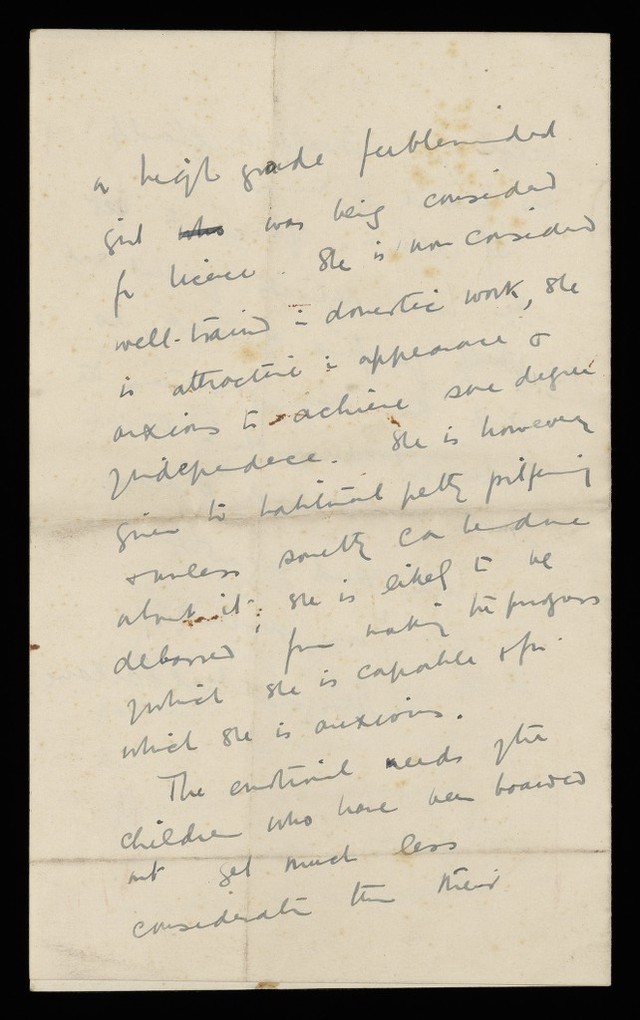 a high grade feebleminded
girl who was being considered
for licence. She is now considered
well-trained in domestic work, she
is attractive in appearance &
anxious to achieve some degree
of independence. She is however
given to habitual petty pilfering
& unless something can be done
about it, she is likely to be
debarred from making the progress
of which she is capable & for
which she is anxious.
The emotional needs of the
children who have been boarded
out get much less
consideration than their